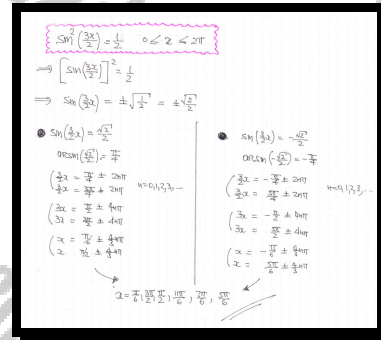 sin²(3x/2) = 1/2   0 ≤ x < 2π
⟹ [sin(3x/2)]² = 1/2
⟹ sin(3/2 x) = ±√(1/2) = ±√2/2
① sin(3/2 x) = √2/2
arcsin(√2/2) = π/4
(3/2 x = π/4 ± 2nπ
(3/2 x = 3π/4 ± 2nπ   n=0,1,2,3,...
(3x = π/2 ± 4nπ
(3x = 3π/2 ± 4nπ
(x = π/6 ± 4/3 nπ
(x = π/2 ± 4/3 nπ
② sin(3/2 x) = -√2/2
arcsin(-√2/2) = -π/4
(3/2 x = -π/4 ± 2nπ
(3/2 x = 5π/4 ± 2nπ   n=0,1,2,3,...
(3x = -π/2 ± 4nπ
(3x = 5π/2 ± 4nπ
(x = -π/6 ± 4/3 nπ
(x = 5π/6 ± 4/3 nπ
x = π/6, 3π/2, π/2, 11π/6, 7π/6, 5π/6